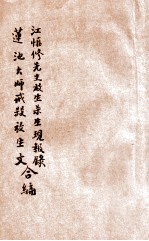 江慎修先生放生杀生現報錄
蓮池大師戒殺放生文
合編